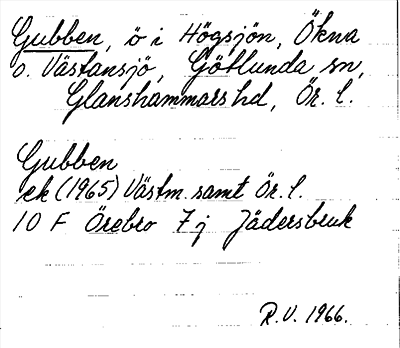 Gubben, ö i Högsjön, Ökna
o. Västansjö, Götlunda sn,
Glanshammars hd, Ör. l.
Gubben
ek (1965) Västm. samt Ör. l.
10 F Örebro 7 j Jädersbruk
R.V. 1966.